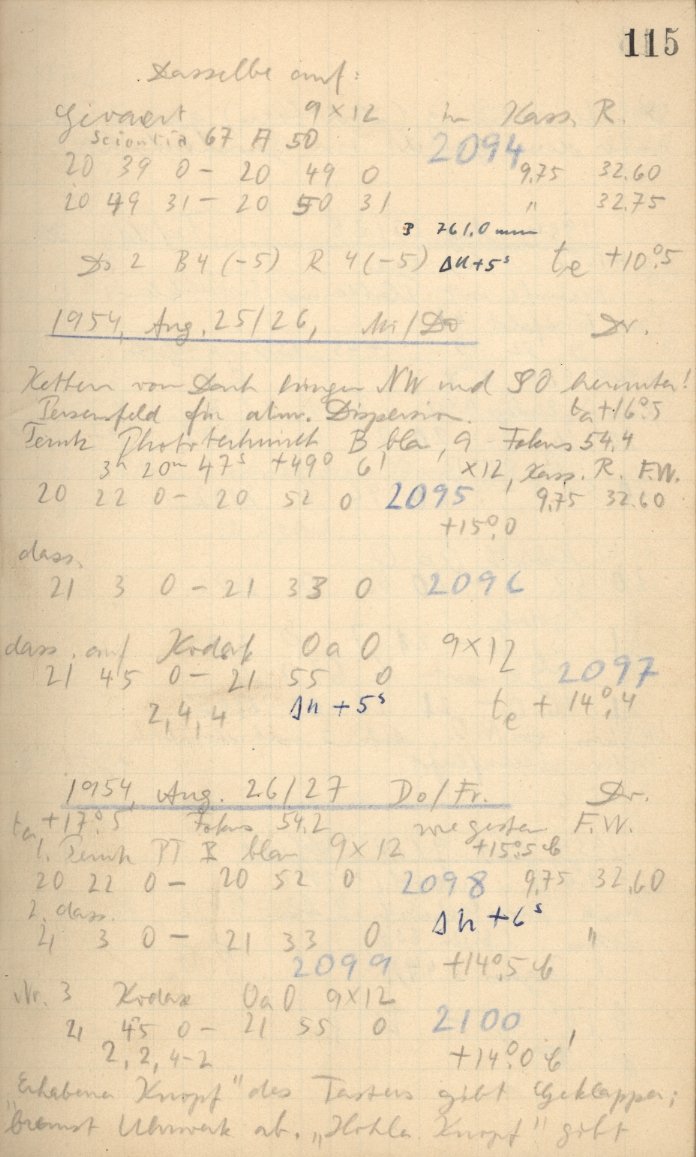 115
Dasselbe auf:
Gevaert 9×12 in Kass. R.
Scientia 67 A 50 2094
20 39 0 – 20 49 0 9,75 32.60
20 49 31 – 20 50 31 " 32.75
B 761,0 mm
Ds 2 B4 (-5) R 4 (-5) Δu+5ˢ te +10°,5
1954, Aug. 25/26, Mi/Do Dr.
Ketten vom Dach hingen NW und SO herunter!
Perseusfeld für atm. Dispersion. ta +16°,5
Perutz Phototechnisch B blau, 9 Fokus 54,4
3ʰ 20ᵐ 47ˢ +49° 6' ×12, Kass. R. F.W.
20 22 0 – 20 52 0 2095 9,75 32.60
+15°,0
dass.
21 3 0 – 21 33 0 2096
dass. auf Kodak OaO 9×12
21 45 0 – 21 55 0 2097
2,4,4 Δu + 5ˢ te + 14°,4
1954, Aug. 26/27 Do/Fr. Dr.
ta +17°,5 Fokus 54.2 wie gestern F.W.
1. Perutz PT B blau 9×12 +15°,5
20 22 0 – 20 52 0 2098 9,75 32,60
2. dass. Δu +6ˢ
21 3 0 – 21 33 0 "
2099 +14°,5
Nr. 3 Kodak OaO 9×12
21 45 0 – 21 55 0 2100
2, 2, 4-2 +14°,0
„Erhabener Knopf" des Tasters gibt Geklapper;
bremst Uhrwerk ab. „Hohler Knopf" gibt